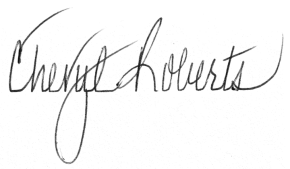 Cheryl Roberts